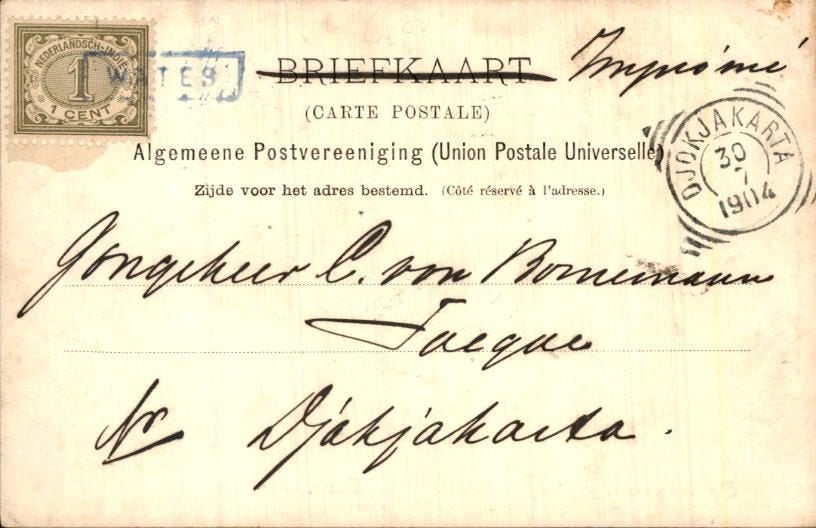 NEDERLANDSCH-INDIË
1
1 CENT
WATES
BRIEFKAART Imprimé
(CARTE POSTALE)
Algemeene Postvereeniging (Union Postale Universelle)
Zijde voor het adres bestemd. (Côté réservé à l'adresse.)
DJOKJAKARTA
30
7
1904
Jongeheer C. von Bornemann
Nr Djokjakarta.